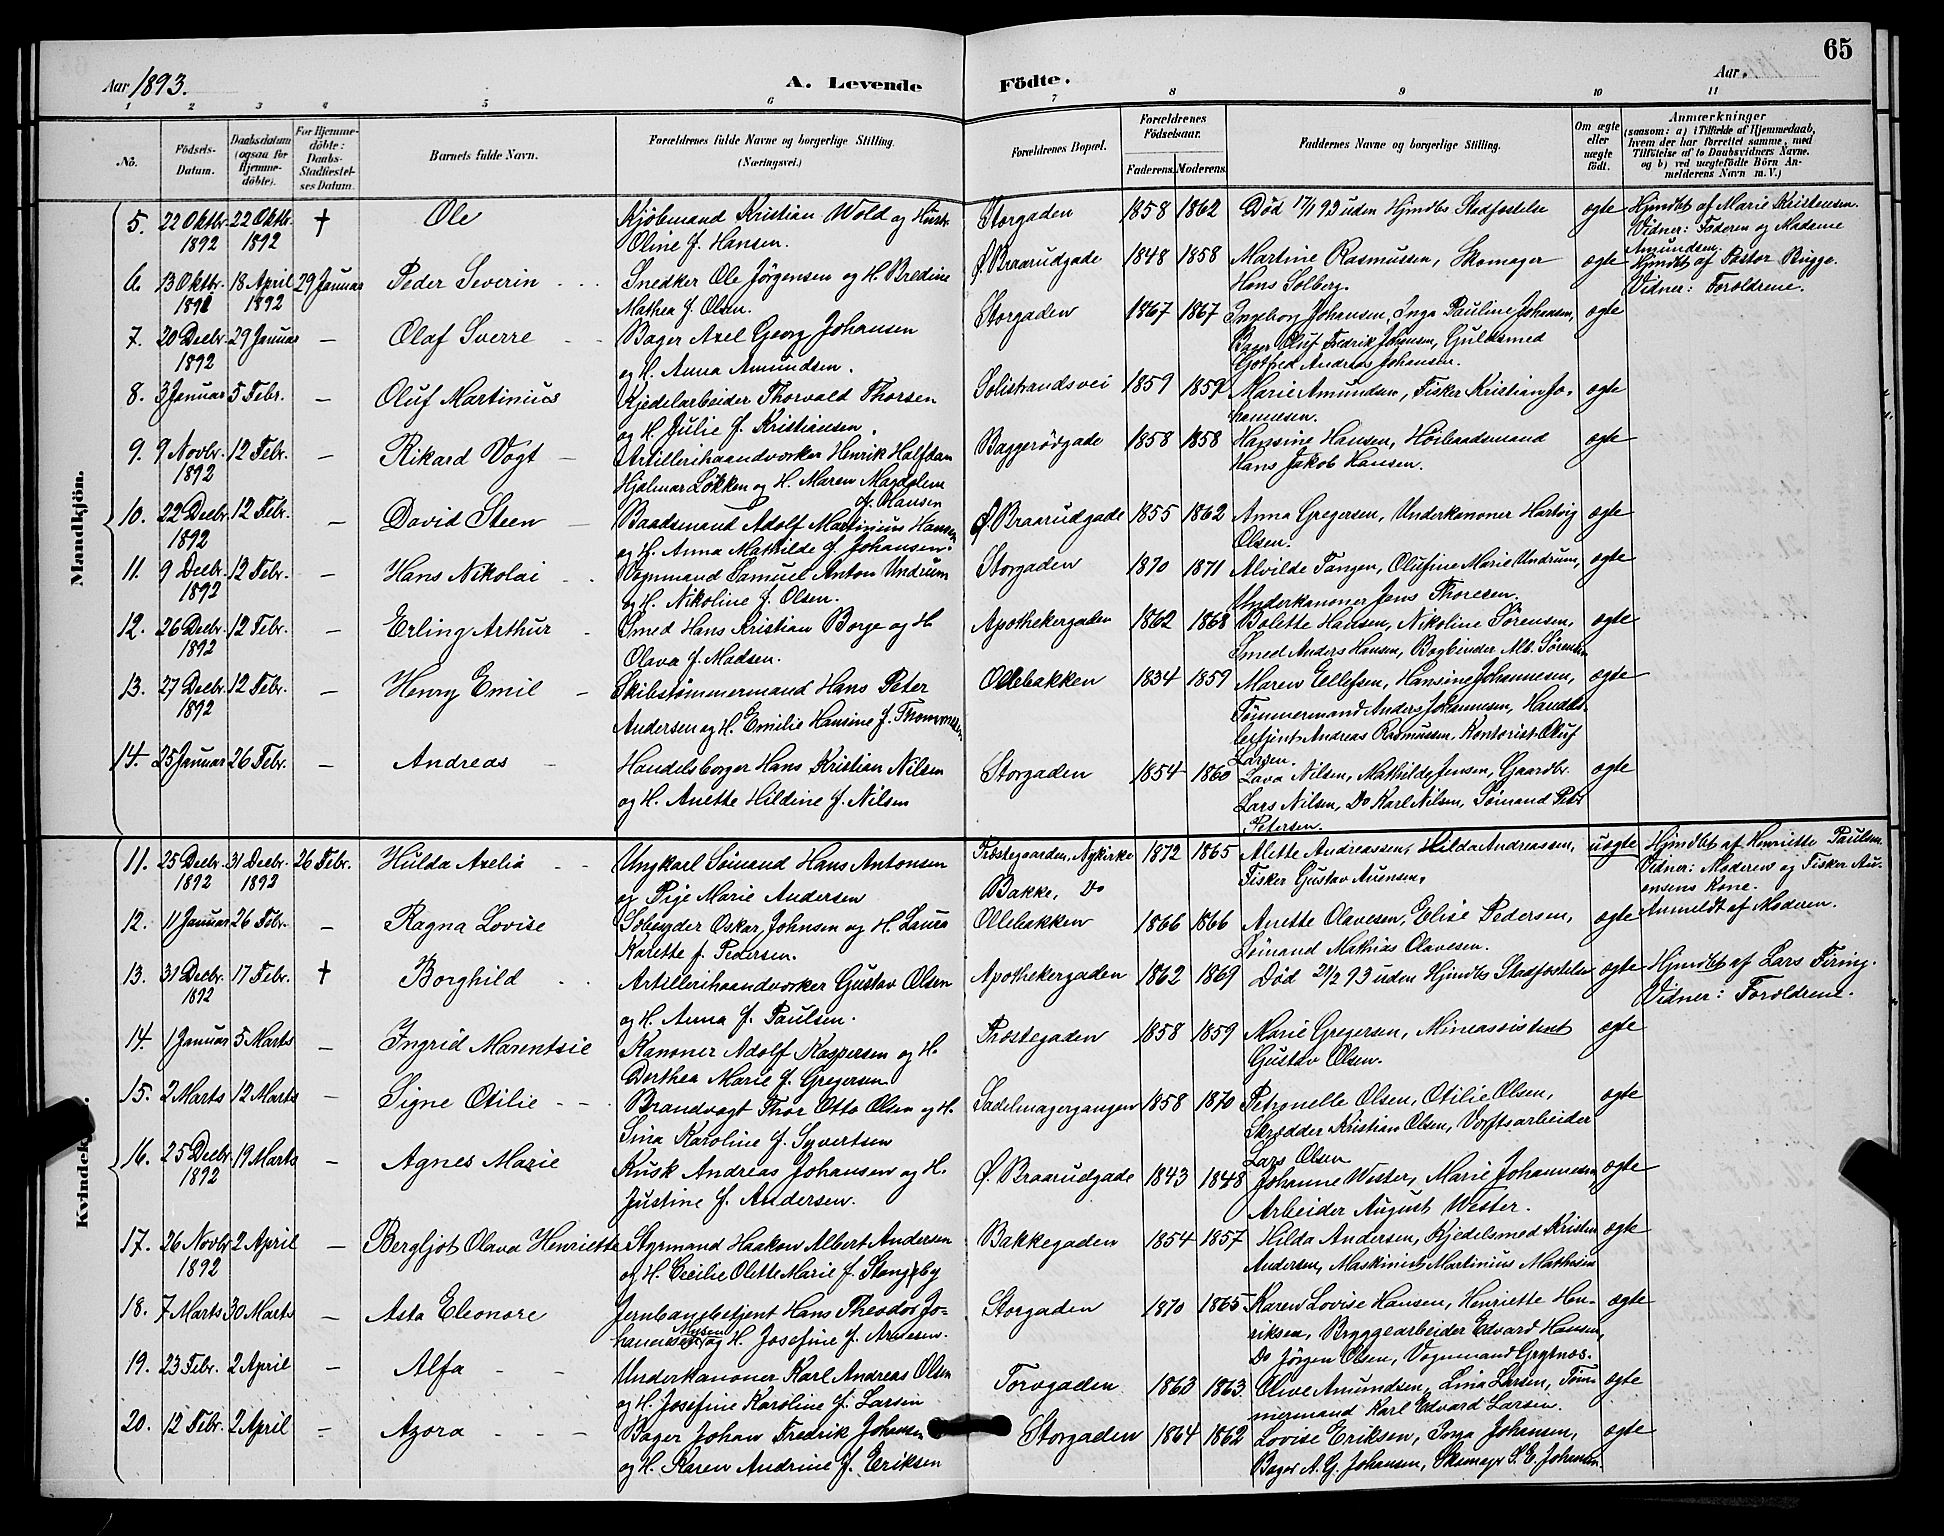 65
Aar 1893.
A. Levende Födte.
Aar
1 2 3 4 5 6 7 8 9 10 11
No.
Födsels-Datum.
Daabsdatum (ogsaa for Hjemme-döbte).
For Hjemme-döbte: Daabs-Stadfæstel-ses Datum.
Barnets fulde Navn.
Forældrenes fulde Navne og borgerlige Stilling. (Næringsvei.)
Forældrenes Bopæl.
Forældrenes Födselsaar.
Faderens. Moderens.
Faddernes Navne og borgerlige Stilling.
Om ægte eller uægte födt.
Anmærkninger
(saasom: a) i Tilfælde af Hjemmedaab, hvem der har forrettet samme, med Tilföielse af to Daabsvidners Navne. og b) ved uægtefödte Börn An-melderens Navn m. V.)
Mandkjön.
5. 22 Oktbr. 1892 22 Oktbr. 1892 † Ole
Kjöbmand Kristian Wold og Hustr.
Oline f. Hansen.
Storgaden 1858 1862 Död 17/1 93 uden Hjmdbs Stadfæstelse ægte
Hjmdbt af Marie Kristensen.
Vidner: Faderen og Madame
Amundsen.
6. 13 Oktbr. 1891 18 April 1892 29 Januar Peder Severin
Snedker Ole Jørgensen og H. Bredine
Mathea f. Olsen.
Ø. Braarudgade 1848 1858 Martine Rasmussen, Skomager
Hans Solberg. ægte
Hjmdbt af Pastor Bugge.
Vidner: Forældrene.
7. 20 Decbr. 1892 29 Januar — Olaf Sverre
Bager Axel Georg Johansen
og H. Anna Amundsen.
Storgaden 1867 1867 Ingeborg Johansen, Inga Pauline Johansen,
Bager Oluf Fredrik Johansen, Guldsmed
Gotfred Andreas Johansen. ægte
8. 3 Januar 5 Febr. — Oluf Martinius
Kjedelarbeider Thorvald Thorsen
og H. Julie f. Kristiansen.
Solistrandsvei 1859 1859 Marie Amundsen, Fisker Kristian Jo-
hannesen. ægte
9. 9 Novbr. 1892 12 Febr. — Rikard Vogt
Artillerihaandværker Henrik Halfdan
Hjalmar Løkken og H. Maren Magdalene
f. Hansen
Baggerödgade 1858 1858 Hansine Hansen, Höibaadsmand
Hans Jakob Hansen. ægte
10. 22 Decbr. 1892 12 Febr. — David Steen
Baadsmand Adolf Martinius Hansen
og H. Anna Mathilde f. Johansen.
Ø. Braarudgade 1855 1862 Anna Gregersen, Underkanoner Hartvig
Olsen. ægte
11. 9 Decbr. 1892 12 Febr. — Hans Nikolai
Vognmand Samuel Anton Undrum
og H. Nikoline f. Olsen.
Storgaden 1870 1871 Alvilde Tangen, Olufine Marie Undrum,
Underkanoner Jens Thoresen. ægte
12. 26 Decbr. 1892 12 Febr. — Erling Arthur
Smed Hans Kristian Borge og H.
Olava f. Madsen.
Apothekergaden 1862 1868 Bolette Hansen, Nikoline Sörensen,
Smed Anders Hansen, Bogbinder Alb. Sörensen ægte
13. 27 Decbr. 1892 12 Febr. — Henry Emil
Skibstömmermand Hans Peter
Andersen og H. Emilie Hansine f. Thommesen
Ollebakken 1834 1859 Maren Ellefsen, Hansine Johannesen,
Tømmermand Anders Johannesen, Handels-
betjent Andreas Rasmussen, Kontorist Oluf
Larsen. ægte
14. 25 Januar 26 Febr. — Andreas
Handelsborger Hans Kristian Nilsen
og H. Anette Hildine f. Nilsen
Storgaden 1854 1860 Lava Nilsen, Mathilde Jensen, Gaardbr.
Lars Nilsen, Do Karl Nilsen, Sømand Petr
Petersen. ægte
Kvindek
11. 25 Decbr. 1892 31 Decbr. 1892 26 Febr. Hulda Axelia
Ungkarl Sömand Hans Antonsen
og Pige Marie Andersen
Præstegaarden, Nykirke
Bakke, Do
1872 1865 Alette Andreassen, Hilda Andreassen,
Fisker Gustav Auensen. uægte
Hjmdbt af Henriette Paulsen.
Vidner: Moderen og Fisker Au-
ensens Kone.
Anmeldt af Moderen.
12. 11 Januar 26 Febr. — Ragna Lovise
Oskar Johnsen og H. Laura
Karette f. Pedersen.
Ollebakken 1866 1866 Anette Olavesen, Elise Pedersen,
Sömand Mathias Olavesen. ægte
13. 31 Decbr. 1892 17 Febr. † Borghild
Artillerihaandværker Gustav Olsen
og H. Anna f. Paulsen.
Apothekergaden 1862 1869 Död 21/2 93 uden Hjmdbs Stadfæstelse ægte
Hjmdbt af Lars Firing.
Vidner: Forældrene.
14. 1 Januar 5 Marts — Ingrid Marentsie
Kanoner Adolf Kaspersen og H.
Dorthea Marie f. Gregersen
Præstegaden 1858 1859 Marie Gregersen, Mineassistent
Gustav Olsen. ægte
15. 2 Marts 12 Marts — Signe Otilie
Brandvagt Thor Otto Olsen og H.
Sina Karoline f. Syvertsen
Sadelmagergangen 1858 1870 Petronelle Olsen, Otilie Olsen,
Skrædder Kristian Olsen, Værftsarbeider
Lars Olsen ægte
16. 25 Decbr. 1892 19 Marts — Agnes Marie
Kusk Andreas Johansen og H.
Justine f. Andersen.
Ø. Braarudgade 1843 1848 Johanne Wester, Marie Johannesen,
Arbeider August Wester. ægte
17. 26 Novbr. 1892 2 April — Bergljot Olava Henriette
Styrmand Haakon Albert Andersen
og H. Cecilie Olette Marie f. Stengsby
Bakkegaden 1854 1857 Hilda Andersen, Kjedelsmed Kristen
Andersen, Maskinist Martinius Mathisen ægte
18. 7 Marts 30 Marts — Asta Eleonore
Jernbanebetjent Hans Theodor Jo-
og H. Josefine f. Arnesen.
Storgaden 1870 1865 Karen Lovise Hansen, Henriette Hen-
riksen, Bryggearbeider Edvard Hansen,
Do Jörgen Olsen, Vognmand Grytnæs. ægte
19. 23 Febr. 2 April — Alfa
Underkanoner Karl Andreas Olsen
og H. Josefine Karoline f. Larsen
Torvgaden 1863 1863 Olive Amundsen, Lina Larsen, Töm-
mermand Karl Edvard Larsen. ægte
20. 12 Febr. 2 April — Azora
Bager Johan Fredrik Johansen
og H. Karen Andrine f. Eriksen
Storgaden 1864 1862 Lovise Eriksen, Inga Johansen,
Bager A. G. Johansen, Skomager S. E. Johansen. ægte